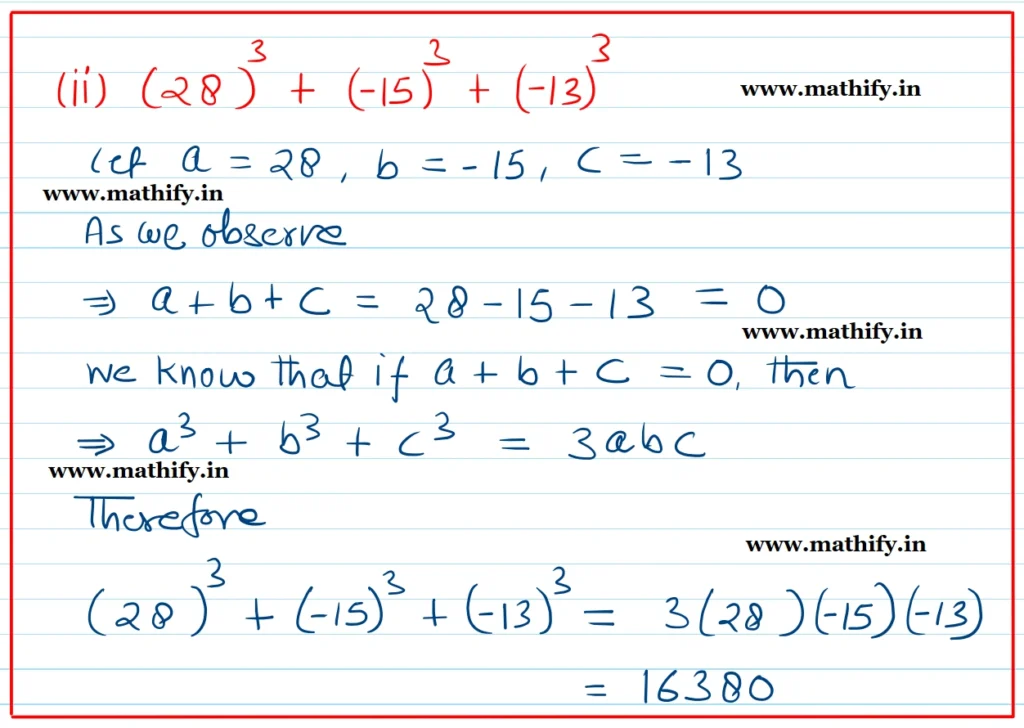 (ii) (28)³ + (-15)³ + (-13)³
www.mathify.in
Let a = 28, b = -15, c = -13
www.mathify.in
As we observe
⇒ a + b + c = 28 - 15 - 13 = 0
www.mathify.in
we know that if a + b + c = 0, then
⇒ a³ + b³ + c³ = 3abc
www.mathify.in
Therefore
www.mathify.in
(28)³ + (-15)³ + (-13)³ = 3(28)(-15)(-13)
= 16380